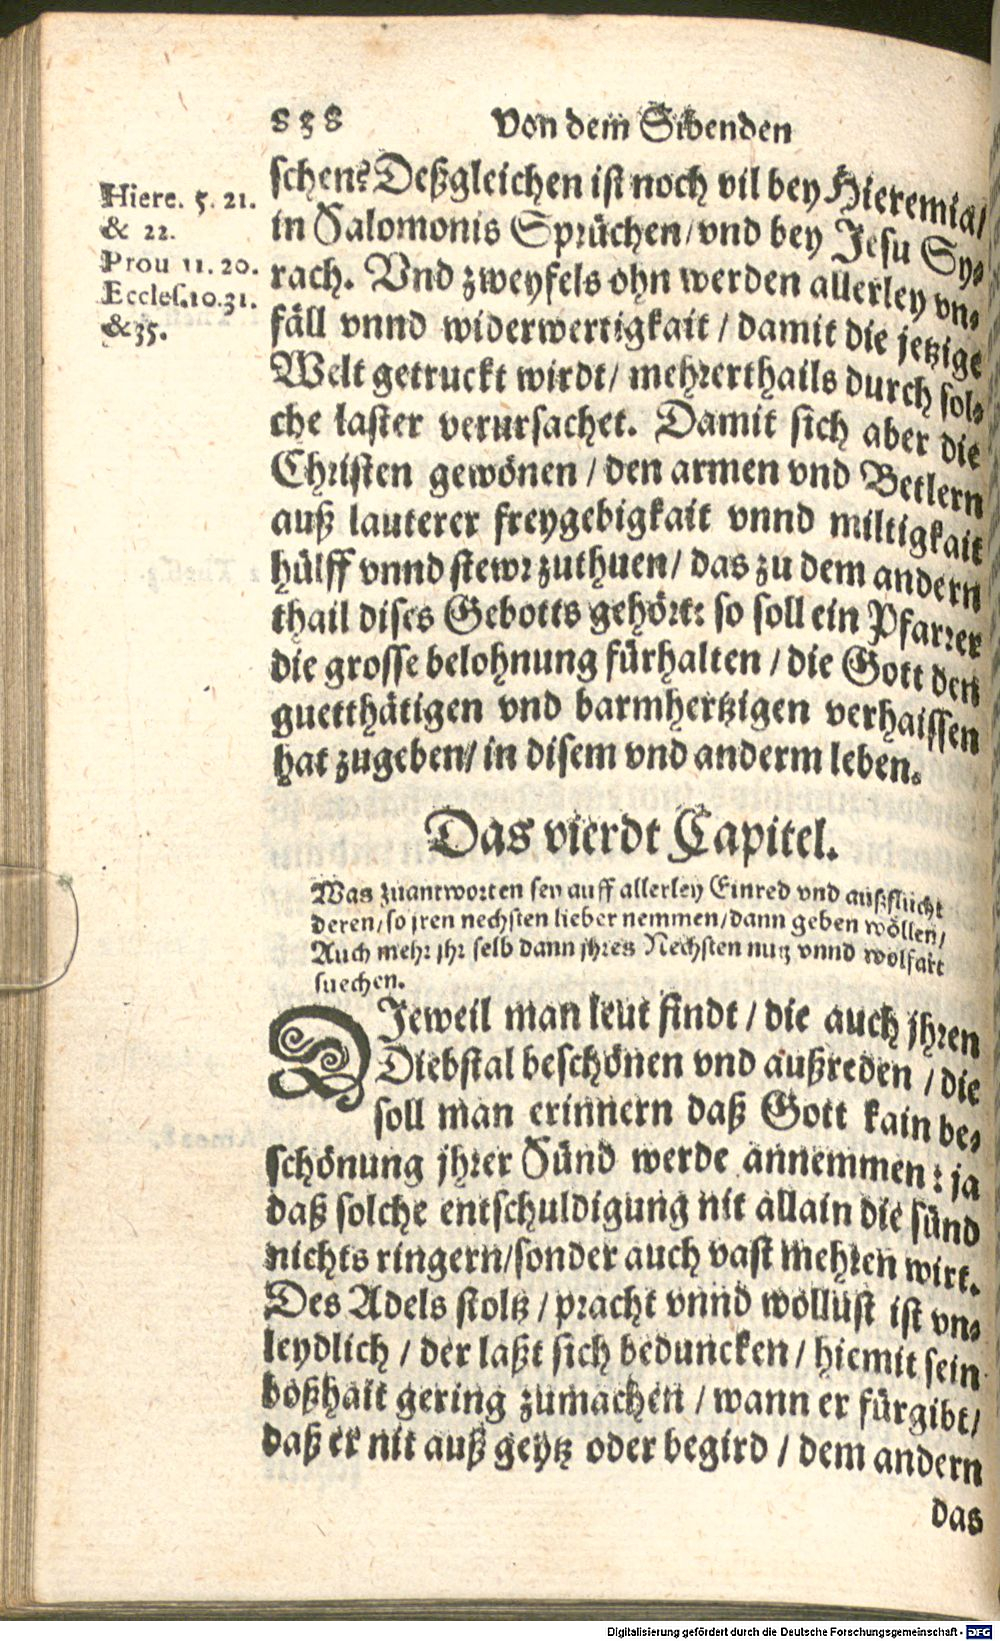 838 Von dem Sibenden
schen? Deßgleichen ist noch vil bey Hieremia/
in Salomonis Sprüchen/vnd bey Jesu Sy⸗
rach. Vnd zweyfels ohn werden allerley vn⸗
fäll vnnd widerwertigkait / damit die jetzige
Welt getruckt wirdt/ mehrerthails durch sol⸗
che laster verursachet. Damit sich aber die
Christen gewönen / den armen vnd Betlern
auß lauterer freygebigkait vnnd miltigkait
hülff vnnd stewr zuthuen/ das zu dem andern
thail dises Gebotts gehört: so soll ein Pfarrer
die grosse belohnung fürhalten / die Gott den
guetthätigen vnd barmhertzigen verhaissen
hat zugeben/ in disem vnd anderm leben.
Hiere. 5. 21.
& 22.
Prou 11. 20.
Eccles.10.31.
&35.
Das vierdt Capitel.
Was zuantworten sey auff allerley Einred vnd außflücht
deren/so jren nechsten lieber nemmen/dann geben wöllen/
Auch mehr jhr selb dann jhres Nechsten nutz vnnd wolfart
suechen.
DJeweil man leut findt / die auch jhren
Diebstal beschönen vnd außreden / die
soll man erinnern daß Gott kain be⸗
schönung jhrer Sünd werde annemmen: ja
daß solche entschuldigung nit allain die sünd
nichts ringern/sonder auch vast mehren wirt.
Des Adels stoltz / pracht vnnd wollust ist vn⸗
leydlich / der laßt sich beduncken / hiemit sein
boßhait gering zumachen / wann er fürgibt/
daß er nit auß geytz oder begird / dem andern
das
Digitalisierung gefördert durch die Deutsche Forschungsgemeinschaft - DFG